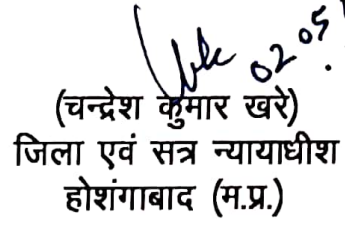 02 05
(चन्द्रेश कुमार खरे)
जिला एवं सत्र न्यायाधीश
होशंगाबाद (म.प्र.)